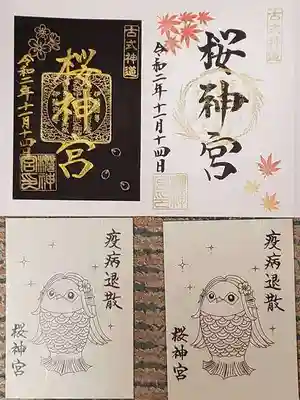 古式神道
桜神宮
令和二年十一月十四日
古式神道
桜神宮
令和二年十一月十四日
疫病退散
桜神宮
疫病退散
桜神宮